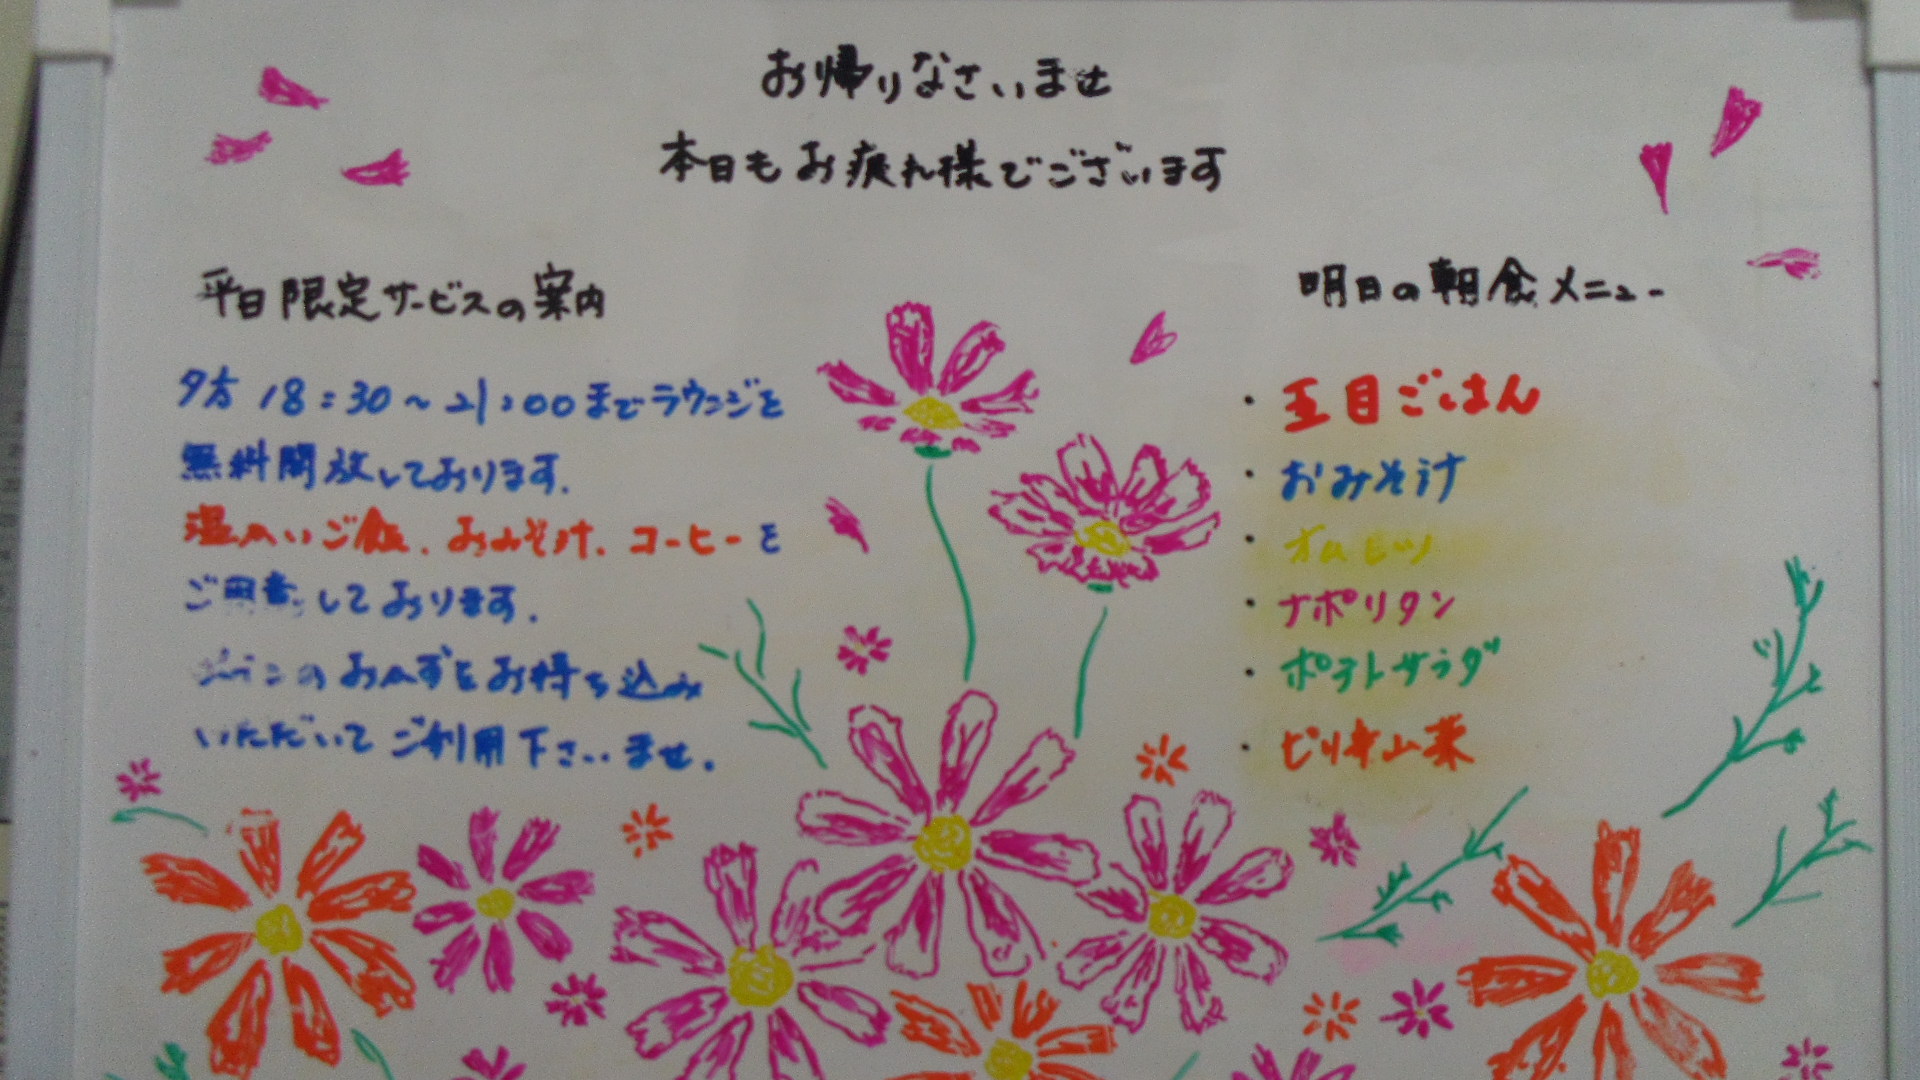 お帰りなさいませ
本日もお疲れ様でございます
平日限定サービスの案内
夕方 18:30～21:00までラウンジを
無料開放しております.
温かいご飯、おみそ汁、コーヒーを
ご用意しております.
のおかずをお持ち込み
いただいてご利用下さいませ.
明日の朝食メニュー
・五目ごはん
・おみそ汁
・オムレツ
・ナポリタン
・ポテトサラダ
・ピリ辛山菜